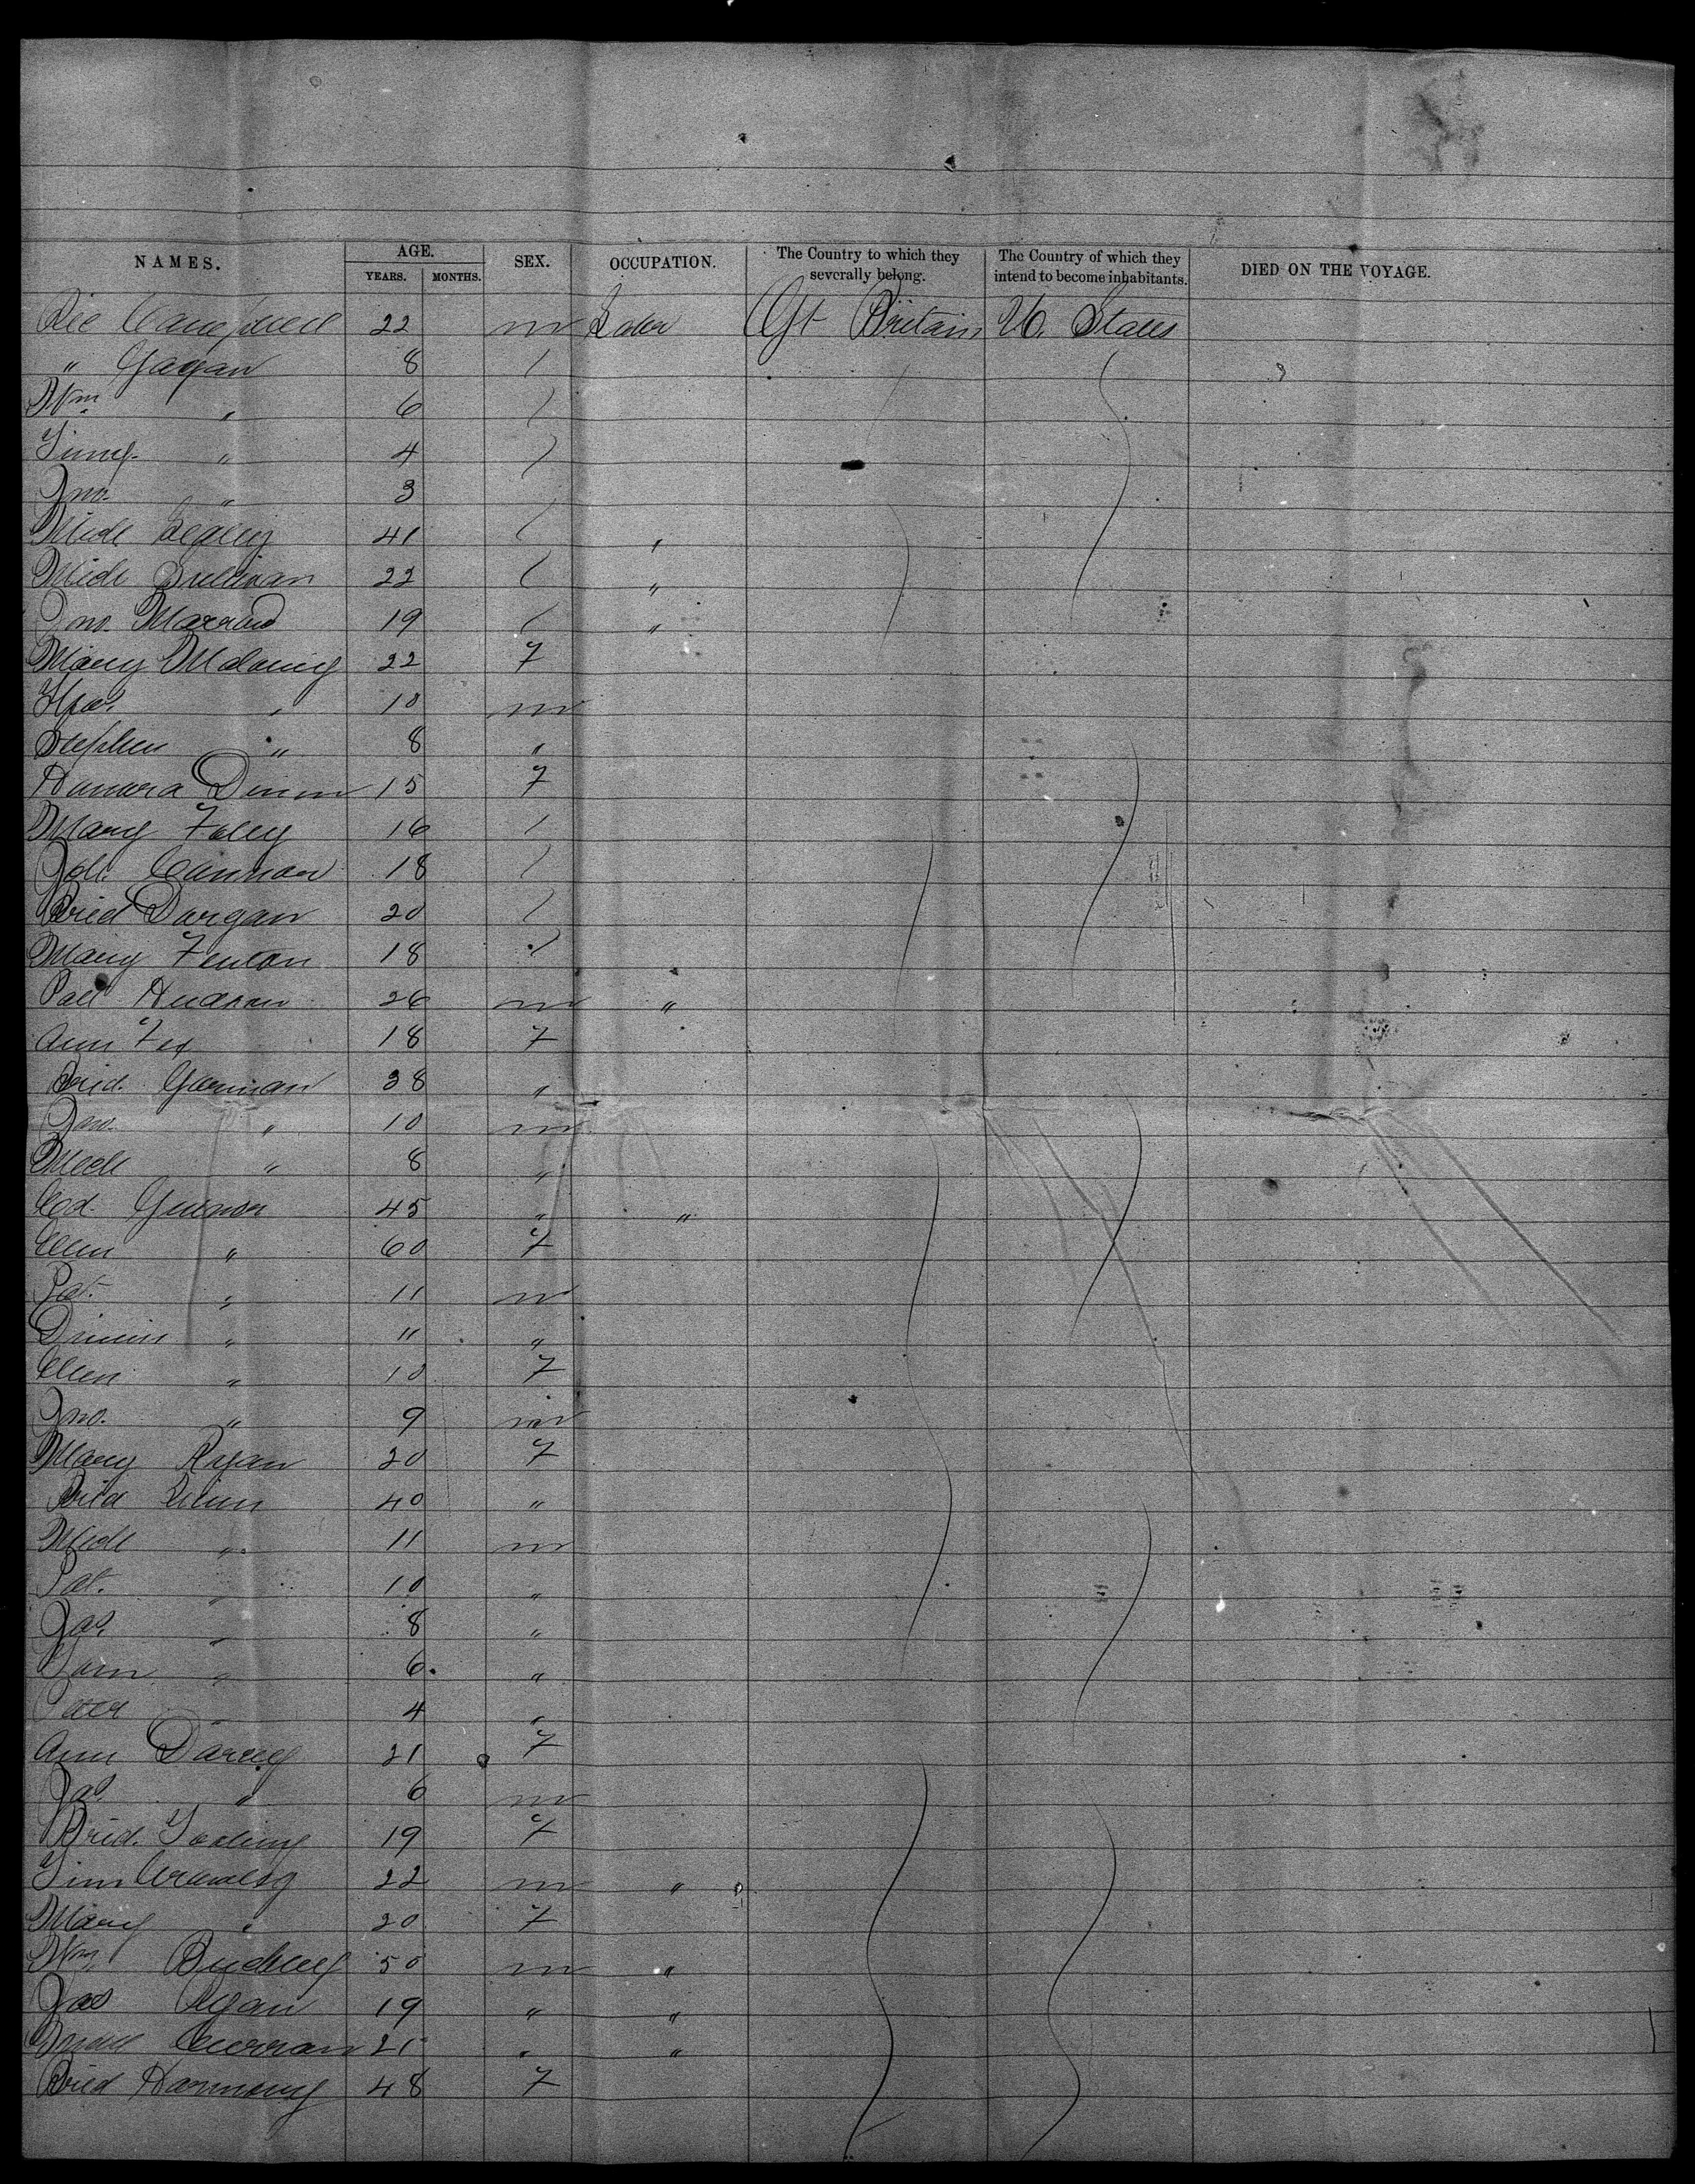 NAMES. AGE. SEX. OCCUPATION. The Country to which they severally belong. The Country of which they intend to become inhabitants. DIED ON THE VOYAGE.
YEARS. MONTHS.
Campbell 22 m Labr Gt Britain U. States
" Gagan 8
Wm " 6
Timy. " 4
Jno. " 3
Mich 41 "
Mich Sullivan 22 "
Jno. 19 "
Mary Maloney 22 F
Thos. " 10 m
Stephen " 8 "
Hanora Dinin 15 F
Mary Foley 16
Cannon 18
Brid Dargan 20
Mary Fenton 18
Patt Hudson 26 m "
Ann Fox 18 F
Brid. Gorman 38 "
Jno. " 10 m
Mich " 8 "
Ed. 45 " "
Ellen " 60 F
Pat. " 11 m
" 11 "
Ellen " 10 F
Jno. " 9 m
Mary Ryan 20 F
Brid 40 "
Mich " 11 m
Pat. " 10 "
Jas. " 8 "
" 6 "
" 4 "
Ann Darcey 21 F
Jas. " 6 m
Brid. 19 F
Tim Crowley 22 m "
Mary " 20 F
Wm. Buckley 50 m "
Jas Ryan 19 " "
Curran 21 " "
Brid 48 F